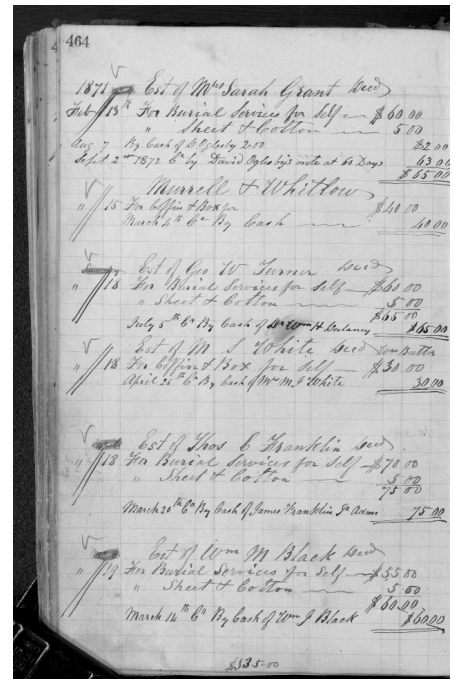 464
1871 Est of Mrs Sarah Grant Decd
Feb 13th For Burial Services for Self — $60.00
" Sheet & Cotton — 5 00
Aug 7 By Cash of C Oglesby 2.00 $2 00
Sept 2nd 1872 Cr by David Oglesby's note at 60 Days 63 00
$65 00
Murrell & Whitlow
" 15 For Coffin & Box for $40.00
March 4th Cr By Cash — 40.00
Est of Geo W Turner Decd
" 18 For Burial Services for Self — $60.00
" Sheet & Cotton — 5 00
$65 00
July 5th Cr By Cash of Dr Wm H Dulaney $65 00
Est of M S White Decd
" 18 For Coffin & Box for Self — $30 00
April 25th Cr By Cash of Mrs M J White 30 00
Est of Thos C Franklin Decd
" 18 For Burial Services for Self — $70 00
" Sheet & Cotton — 5 00
75 00
March 20th Cr By Cash of James Franklin Jr Admr 75 00
Est of Wm M Black Decd
" 19 For Burial Services for Self — $55.00
" Sheet & Cotton — 5.00
$60.00
March 14th Cr By Cash of Wm J Black $60.00
$335.00